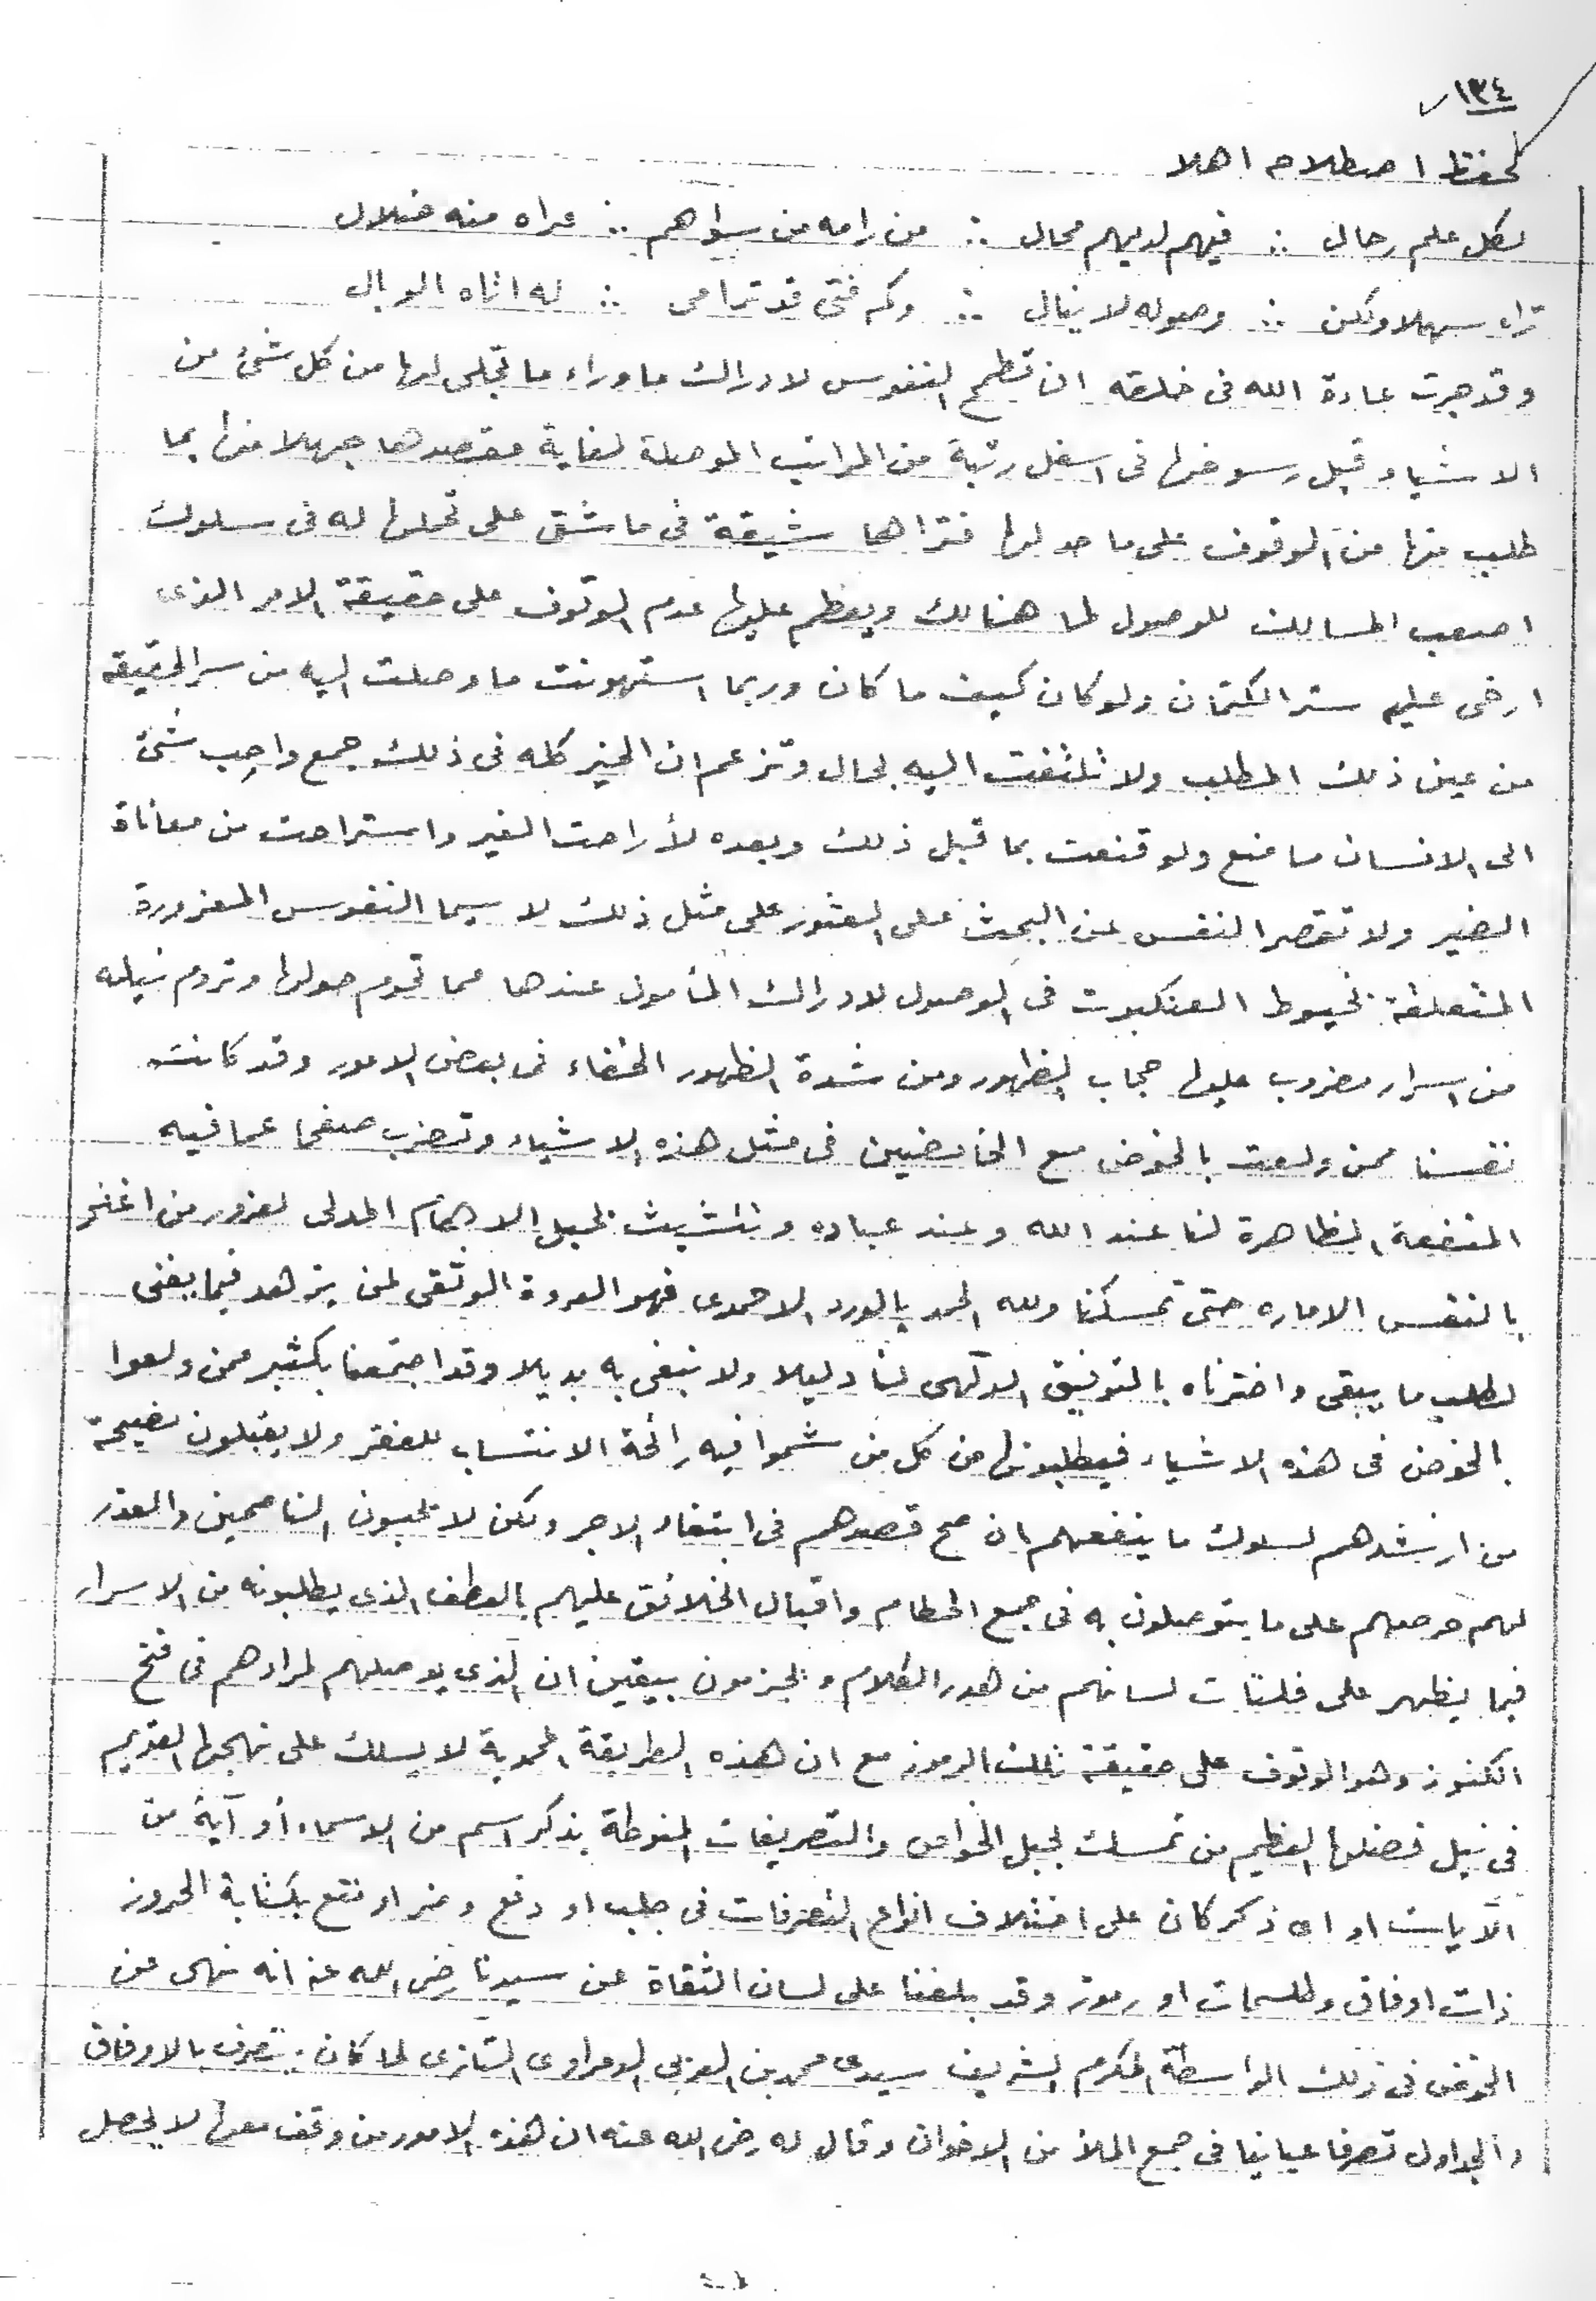 ١٣٤
لحفظ اصطلاحه اهلا
لكل علم رجال ∴ فيهم لديهم محال ∴ من رامه من سواهم ∴ عراه منه ضلال
تراه سهلا ولكن ∴ وصوله لا ينال ∴ وكم فتى قد ترامى ∴ له اتاه الوبال
وقد جرت عادة الله فى خلقه ان تطمح النفوس لادراك ما وراء ما تجلى لها من كل شئ من
الاشياء قبل رسوخها فى اسفل رتبة من المراتب الموصلة لغاية مقصدها جهلا منها بما
طلب منها من الوقوف على ما حد لها فتراها شيقة فى ما شق على تحملها له فى سلوك
اصعب المسالك للوصول لما هنالك ويعظم عليها عدم الوقوف على حقيقة الامر الذى
ارخى عليه ستر الكتمان ولو كان كيف ما كان وربما استهونت ما وصلت اليه من سر الحقيقة
من عين ذلك المطلب ولا تلتفت اليه بحال وتزعم ان الخير كله فى ذلك جمع واحب شئ
الى الانسان ما منع ولو قنعت بما قبل ذلك وبعده لأراحت الغير واستراحت من معاناة
الضير ولا تقصر النفس عن البحث على العثور على مثل ذلك لا سيما النفوس المغرورة
المتعلقة بخيوط العنكبوت فى الوصول لادراك المأمول عندها مما تحوم حولها وتروم نيله
من اسرار مضروب عليها حجاب الظهور ومن شدة الظهور الخفاء فى بعض الامور وقد كانت
نفسنا ممن ولعت بالخوض مع الخائضين فى مثل هذه الاشياء وتضرب صفحا عما فيه
المنفعة الظاهرة لنا عند الله وعند عباده وتتشبث بحبل الاهتمام المدلى لغرور من اغتر
بالنفس الاماره حتى تمسكنا ولله الحمد بالورد الاحمدى فهو العروة الوثقى لمن يزهد فيما يفنى
لطلب ما يبقى واخترناه بالتوفيق الالهى لنا دليلا ولا نبغى به بديلا وقد اجتمعنا بكثير ممن ولعوا
بالخوض فى هذه الاشياء فيطلبونها من كل من شموا فيه رائحة الانتساب للفقر ولا يقبلون نصيحة
من ارشدهم لسلوك ما ينفعهم ان صح قصدهم فى ابتغاء الاجر ولكن لا تحبون الناصحين والعذر
لهم حرصهم على ما يتوصلون به فى جمع الحطام واقبال الخلائق عليهم بالعطف الذى يطلبونه من الاسرار
فيما يظهر على فلتات لسانهم من هدر الكلام ويجزمون بيقين ان الذى يوصلهم لمرادهم فى فتح
الكنوز وهو الوقوف على حقيقة تلك الرموز مع ان هذه الطريقة المحمدية لا يسلك على نهجها القويم
فى نيل فضلها العظيم من تمسك بحبل الخواص والتصريفات المنوطة بذكر اسم من الاسماء أو آية من
الآيات او اى ذكر كان على اختلاف انواع التصرفات فى جلب او دفع وضر او نفع بكتابة الحروز
ذات اوفاق وطلسمات او رموز وقد بلغنا على لسان الثقاة عن سيدنا رضى الله عنه انه نهى عن
الخوض فى ذلك الواسطة المكرم الشريف سيدى محمد بن العربى الدمراوى التازى لما كان يتصرف بالاوفاق
والجداول تصرفا عيانيا فى جمع الملأ من الاخوان وقال له رضى الله عنه ان هذه الامور من وقف معها لا يحصل